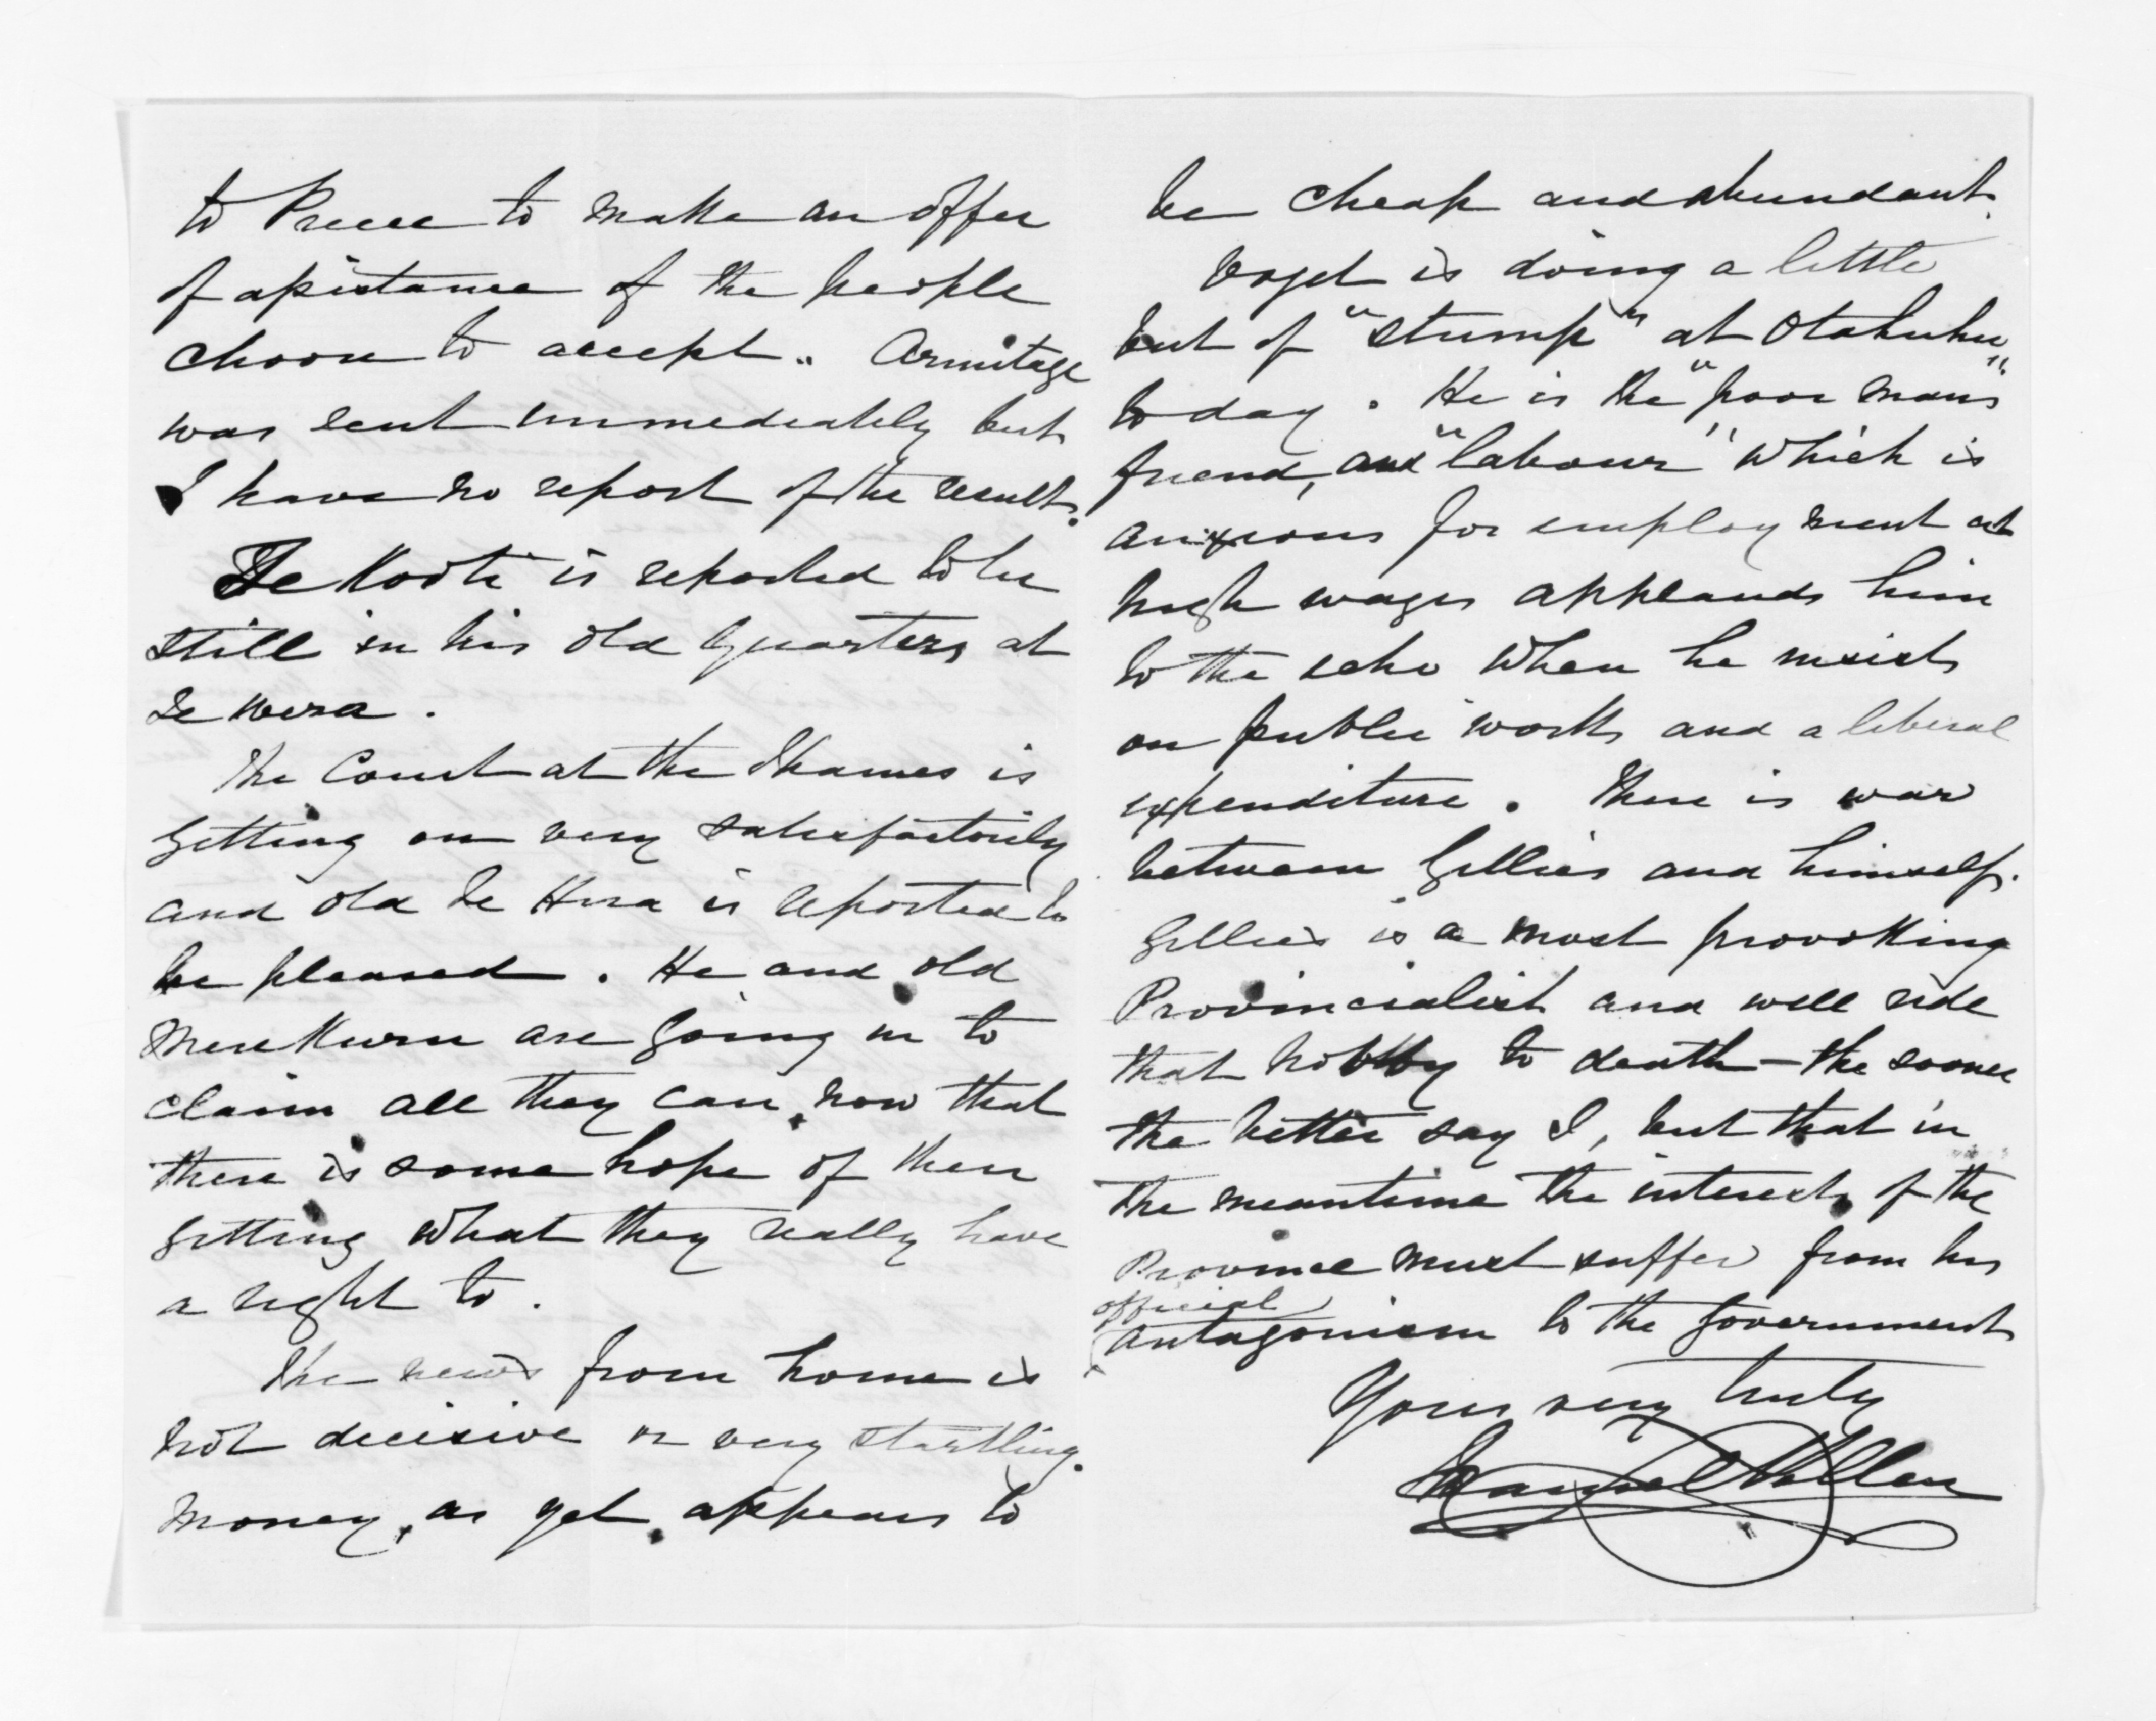 to Preece to make an offer
of assistance if the people
choose to accept. Armitage
was sent immediately but
I have no report of the result.
Te Kooti is reported to be
still in his old quarters at
Te Wera.
The Court at the Thames is
getting on very satisfactorily
and old Te Hira is reported to
be pleased. He and old
Mere Kuru are going in to
claim all they can, now that
there is some hope of their
getting what they really have
a right to.
The news from home is
not decisive or very startling.
Money, as yet, appears to
be cheap and abundant.
Vogel is doing a little
but of "stump" at Otahuhu
to day. He is the "poor mans"
friend, and "labour" which is
anxious for employment at
high wages applauds him
to the echo when he insists
on public works and a liberal
expenditure. There is war
between Gillies and himself.
Gillies is a most provoking
Provincialist and will ride
that hobby to death - the sooner
the better say I, but that in
the meantime the interests of the
Province must suffer from his
official
antagonism to the Government
Yours very truly
Daniel Pollen